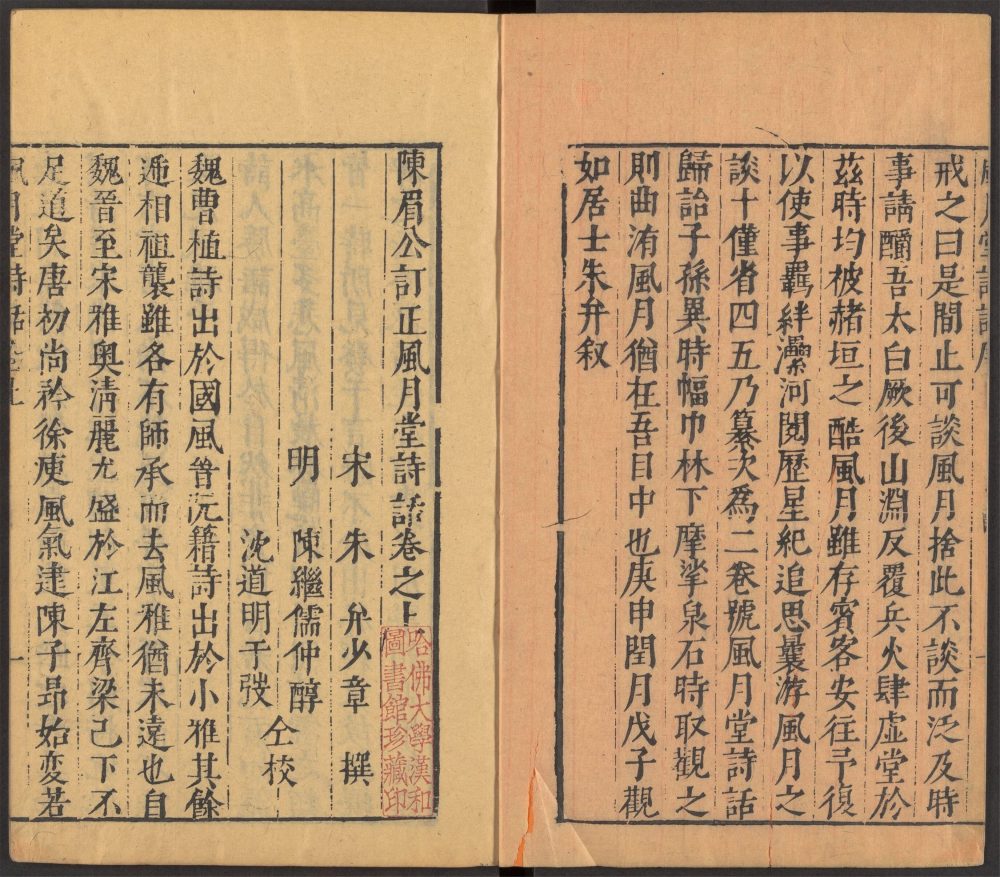 戒之曰是間止可談風月捨此不談而泛及時
事請釂吾太白厥後山淵反覆兵火肆虐堂於
茲時均被赭垣之酷風月雖存賓客安往予復
以使事羈絆灤河閱歷星紀追思曩游風月之
談十僅省四五乃纂次為二卷號風月堂詩話
歸詒子孫異時幅巾林下摩挲泉石時取觀之
則曲洧風月猶在吾目中也庚申閏月戊子觀
如居士朱弁叙
陳眉公訂正風月堂詩話卷之上
宋 朱 弁少章 撰
明 陳繼儒仲醇
沈道明于弢 仝校
魏曹植詩出於國風晉阮籍詩出於小雅其餘
遞相祖襲雖各有師承而去風雅猶未遠也自
魏晉至宋雅奧清麗尤盛於江左齊梁已下不
足道矣唐初尚矜徐庾風氣逮陳子昻始变若
風月堂詩話卷上
一
哈佛大學漢和
圖書館珍藏印